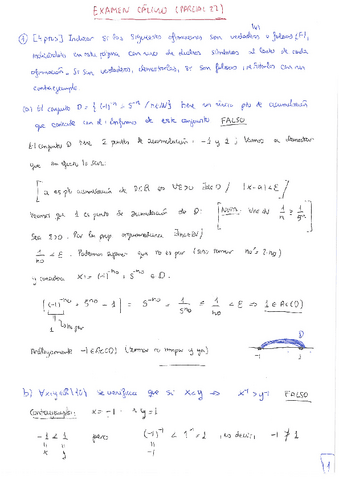 EXAMEN CÁLCULO (PARCIAL 22)
(V)
① [2 ptos] Indicar si las siguientes afirmaciones son verdaderas o falsas (F),
indicándolo en esta página con uno de dichos símbolos al lado de cada
afirmación. Si son verdaderas, demostrarlas, si son falsas, con un
contraejemplo.
(a) El conjunto D = { (-1)⁻ⁿ + 5⁻ⁿ / n∈ℕ } tiene un único pto de acumulación
que coincide con el ínfimo de este conjunto FALSO
El conjunto D tiene 2 puntos de acumulación -1 y 1; vamos a demostrar
que en efecto lo son:
[ a es pto acumulación de D⊂ℝ ⇔ ∀ε>0 ∃x∈D / |x-a|<ε ]
Veamos que 1 es punto de acumulación de D: [ NOTA: ∀n∈ℕ 1/n ≥ 1/5ⁿ ]
Sea ε>0. Por la prop arquimediana ∃n₀∈ℕ /
1/n₀ < ε. Podemos suponer que n₀ es par (sino tomar n₀' = 2·n₀)
y x := (-1)⁻ⁿ⁰ + 5⁻ⁿ⁰ ∈ D.
| (-1)⁻ⁿ⁰ + 5⁻ⁿ⁰ - 1 | = 5⁻ⁿ⁰ = 1/5ⁿ⁰ ≤ 1/n₀ < ε ⇒ 1∈Ac(D)
1 n₀ es par
Análogamente -1∈Ac(D) (tomar n₀ impar y ya)
D
-1 1
b) ∀x,y∈ℝ\{0} se verifica que si x<y ⇒ x⁻¹>y⁻¹ FALSO
Contraejemplo: x = -1 y y=1
-1 < 1 pero (-1)⁻¹ < 1⁻¹ = 1, es decir, -1 ≯ 1
x y -1
1